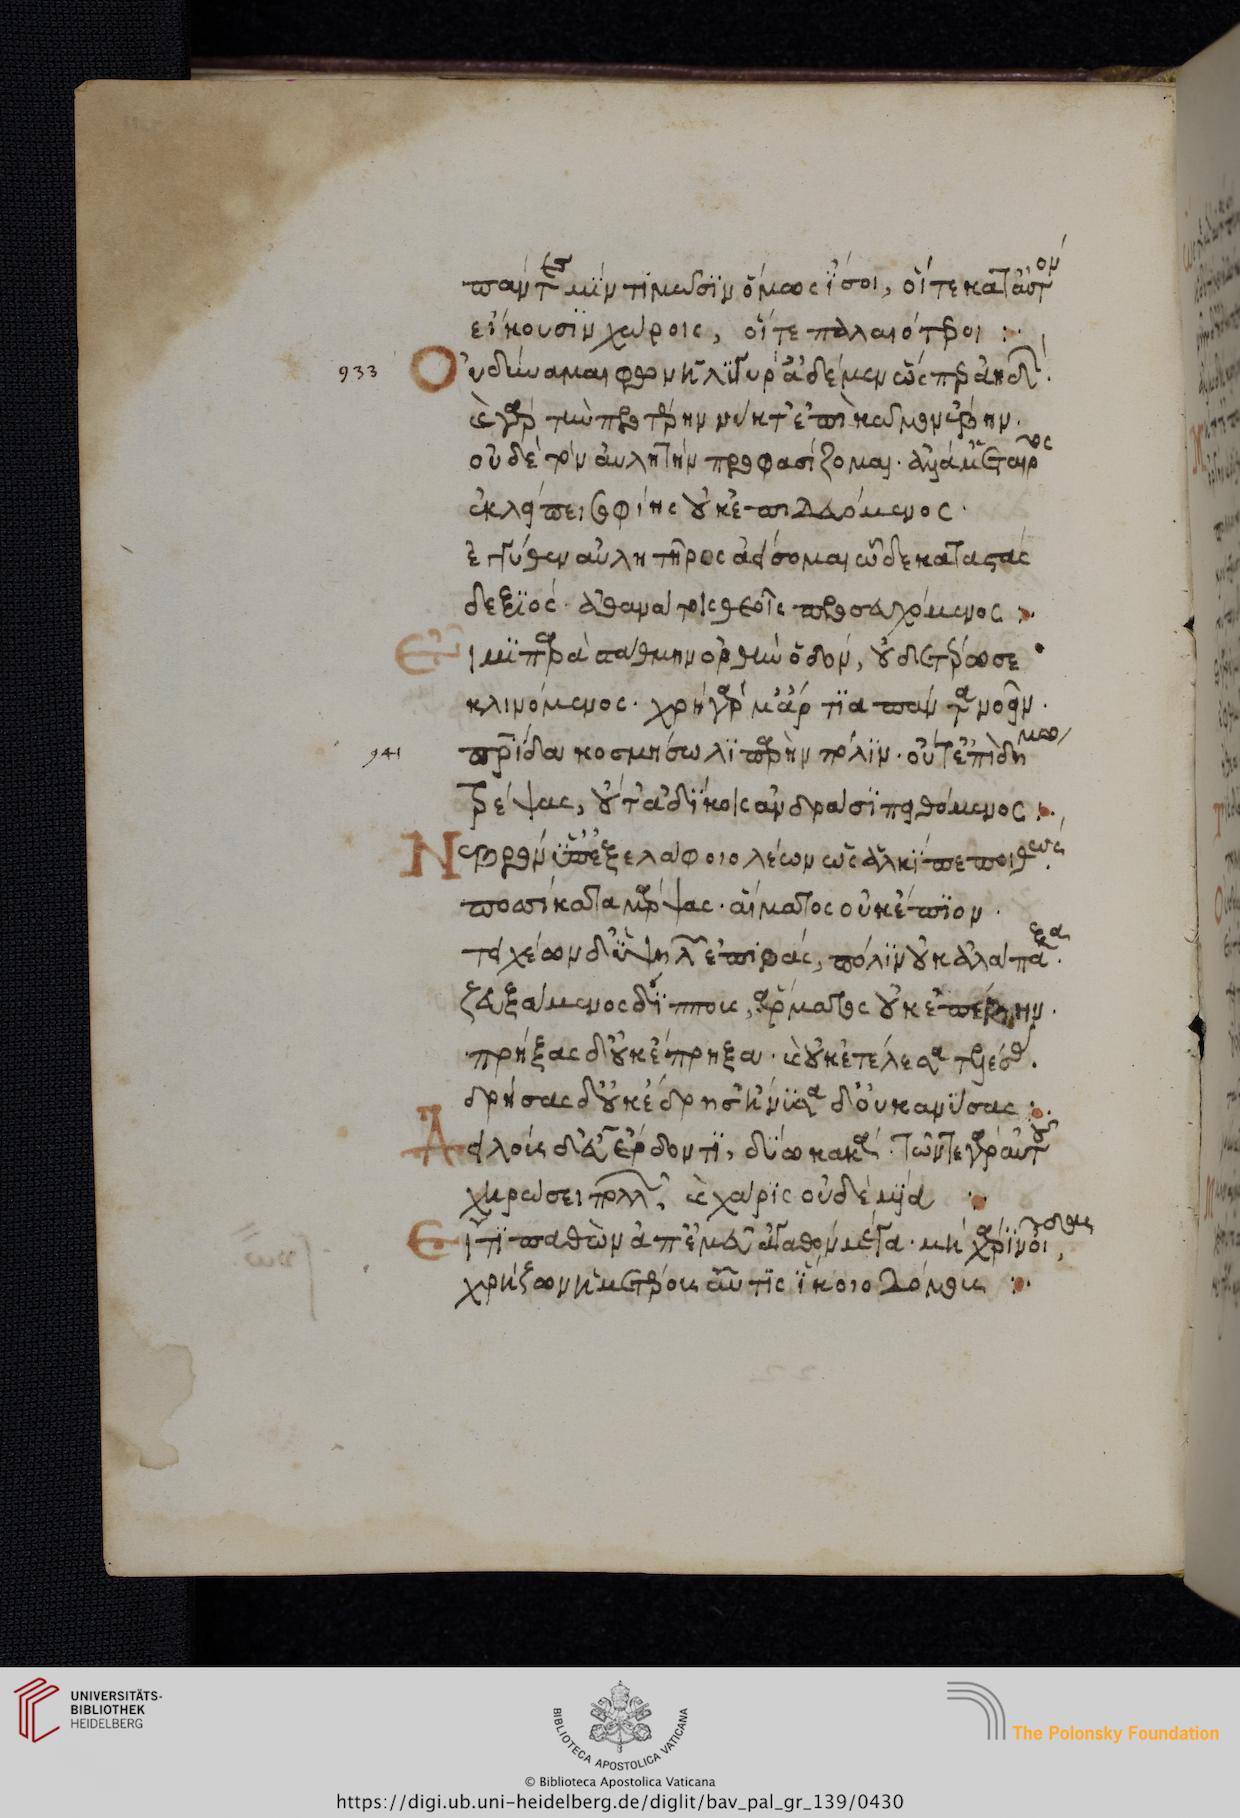 πάντες μϊν τιμῶσϊν ὅμως ἴσοι, οἵ τε κατ' αὐτὸν
εἴκουσϊν χώροις, οἵ τε παλαιότεροι :·
933 Οὐ δύναμαι φωνῇ λϊγυρ' ἀδέμεν ὡς περ ἀηδών·
καὶ γὰρ τὴν προτέρην νύκτ' ἐπὶ κῶμον ἔβην·
οὐδὲ τὸν αὐλητὴν προφασίζομαι· ἀλλά μ' ἑταῖρος
ἐκλείπει σοφίης οὐκ ἐπιδευόμενος·
ἐγγύθεν αὐλητῆρος ἀείσομαι ὧδε καταστὰς
δεξϊός· ἀθανάτοις θεοῖς προσευχόμενος :·
Εἶμϊ παρὰ στάθμην ὀρθὴν ὁδόν, οὐδετέρωσε
κλινόμενος· χρὴ γάρ μ' ἄρτϊα πάντα νοεῖν·
941 πατρίδα κοσμήσω λϊπαρὴν πόλϊν· οὔτ' ἐπὶ δήμῳ
τρέψας, οὔτ' ἀδϊκοις ἀνδράσϊ πειθόμενος :·
Νεβρὸν ὑπὲξ ἐλάφοιο λέων ὡς ἀλκὶ πεποιθώς·
ποσσὶ καταμάρψας· αἵματος οὐκ ἔπϊον·
τειχέων δ' ὑψηλῶν ἐπιβάς, πόλϊν οὐκ ἀλάπαξα·
ζευξάμενος δ' ἵππους, ἅρματος οὐκ ἐπέβην·
πρήξας δ' οὐκ ἔπρηξα· καὶ οὐκ ἐτέλεσσα τελέσας·
δρήσας δ' οὐκ ἔδρησ' ἤνϋσα δ' οὐκ ἀνύσας :·
Δειλοὺς δ' εὖ ἔρδοντϊ, δύω κακά· τῶν τε γὰρ αὐτοῦ
χηρώσει πολλῶν, καὶ χάρϊς οὐδεμία :·
Εἴ τϊ παθὼν ἀπ' ἐμεῦ ἀγαθὸν μέγα· μὴ χάρϊν οἶσθας,
χρῄζων ἡμετέρους αὖτϊς ἵκοιο δόμους :·
UNIVERSITÄTS-
BIBLIOTHEK
HEIDELBERG
BIBLIOTECA APOSTOLICA VATICANA
The Polonsky Foundation
© Biblioteca Apostolica Vaticana
https://digi.ub.uni-heidelberg.de/diglit/bav_pal_gr_139/0430